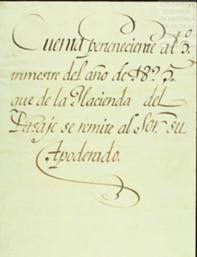 Cuenta perteneciente al 3.º
trimestre del año de 1825
que de la Hacienda del
Pasaje se remite al Sor. su
Apoderado.